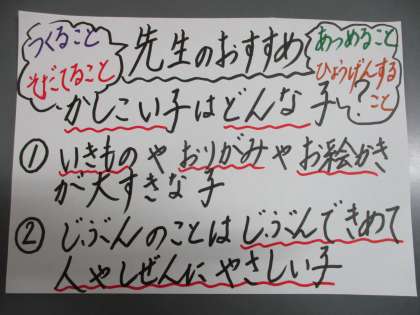 つくること
そだてること
先生のおすすめ
あつめること
ひょうげんする
こと
かしこい子はどんな子?
① いきものやおりがみやお絵かき
が大すきな子
② じぶんのことはじぶんできめて
人やしぜんにやさしい子